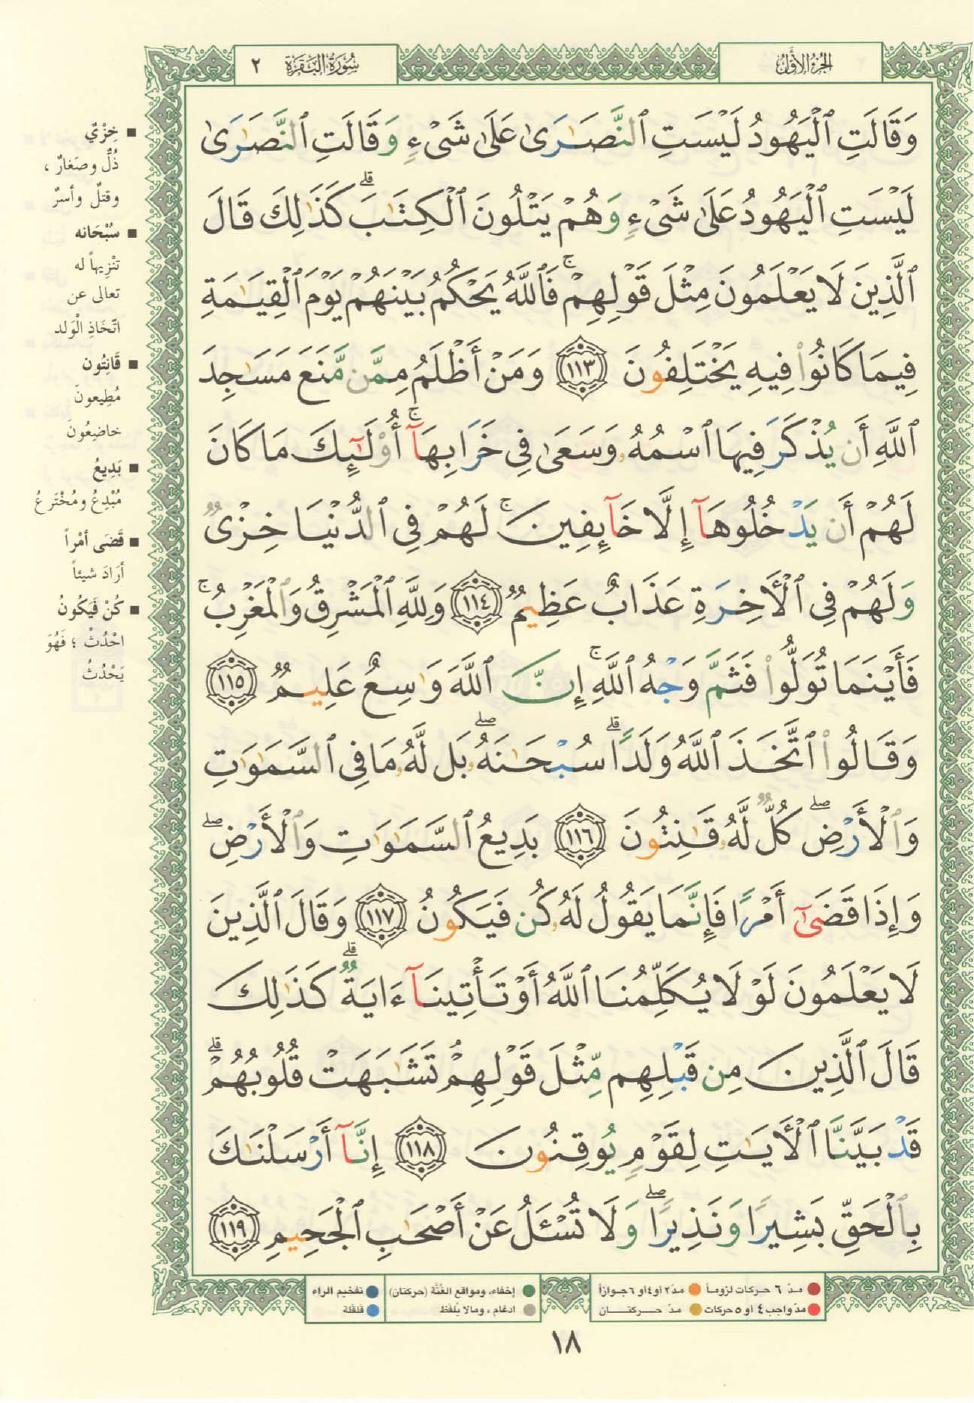 الجزء الأول
سورة البقرة ٢
وَقَالَتِ ٱلْيَهُودُ لَيْسَتِ ٱلنَّصَـٰرَىٰ عَلَىٰ شَىْءٍ وَقَالَتِ ٱلنَّصَـٰرَىٰ
لَيْسَتِ ٱلْيَهُودُ عَلَىٰ شَىْءٍ وَهُمْ يَتْلُونَ ٱلْكِتَـٰبَ ۗ كَذَٰلِكَ قَالَ
ٱلَّذِينَ لَا يَعْلَمُونَ مِثْلَ قَوْلِهِمْ ۚ فَٱللَّهُ يَحْكُمُ بَيْنَهُمْ يَوْمَ ٱلْقِيَـٰمَةِ
فِيمَا كَانُوا۟ فِيهِ يَخْتَلِفُونَ ﴿١١٣﴾ وَمَنْ أَظْلَمُ مِمَّن مَّنَعَ مَسَـٰجِدَ
ٱللَّهِ أَن يُذْكَرَ فِيهَا ٱسْمُهُۥ وَسَعَىٰ فِى خَرَابِهَآ ۚ أُو۟لَـٰٓئِكَ مَا كَانَ
لَهُمْ أَن يَدْخُلُوهَآ إِلَّا خَآئِفِينَ ۚ لَهُمْ فِى ٱلدُّنْيَا خِزْىٌ
وَلَهُمْ فِى ٱلْـَٔاخِرَةِ عَذَابٌ عَظِيمٌ ﴿١١٤﴾ وَلِلَّهِ ٱلْمَشْرِقُ وَٱلْمَغْرِبُ ۚ
فَأَيْنَمَا تُوَلُّوا۟ فَثَمَّ وَجْهُ ٱللَّهِ ۚ إِنَّ ٱللَّهَ وَٰسِعٌ عَلِيمٌ ﴿١١٥﴾
وَقَالُوا۟ ٱتَّخَذَ ٱللَّهُ وَلَدًا ۗ سُبْحَـٰنَهُۥ ۖ بَل لَّهُۥ مَا فِى ٱلسَّمَـٰوَٰتِ
وَٱلْأَرْضِ ۖ كُلٌّ لَّهُۥ قَـٰنِتُونَ ﴿١١٦﴾ بَدِيعُ ٱلسَّمَـٰوَٰتِ وَٱلْأَرْضِ ۖ
وَإِذَا قَضَىٰٓ أَمْرًا فَإِنَّمَا يَقُولُ لَهُۥ كُن فَيَكُونُ ﴿١١٧﴾ وَقَالَ ٱلَّذِينَ
لَا يَعْلَمُونَ لَوْلَا يُكَلِّمُنَا ٱللَّهُ أَوْ تَأْتِينَآ ءَايَةٌ ۗ كَذَٰلِكَ
قَالَ ٱلَّذِينَ مِن قَبْلِهِم مِّثْلَ قَوْلِهِمْ ۘ تَشَـٰبَهَتْ قُلُوبُهُمْ ۗ
قَدْ بَيَّنَّا ٱلْـَٔايَـٰتِ لِقَوْمٍ يُوقِنُونَ ﴿١١٨﴾ إِنَّآ أَرْسَلْنَـٰكَ
بِٱلْحَقِّ بَشِيرًا وَنَذِيرًا ۖ وَلَا تُسْـَٔلُ عَنْ أَصْحَـٰبِ ٱلْجَحِيمِ ﴿١١٩﴾
■ خِزْيٌ
ذُلٌّ وصَغارٌ ،
وقتلٌ وأسرٌ
■ سُبْحَانه
تنْزِيهاً له
تعالى عن
اتّخاذِ الْوَلد
■ قَانِتُون
مُطِيعونَ
خاضِعُونَ
■ بَدِيعُ
مُبْدِعُ ومُخْتَرعُ
■ قَضَى أمْراً
أرَادَ شيئاً
■ كُنْ فَيَكُونُ
احْدُثْ ؛ فَهُوَ
يَحْدُثُ
مدّ ٦ حركات لزوماً ● مدّ ٢ أو ٤ أو ٦ جوازاً
مدّ واجب ٤ أو ٥ حركات ● مدّ حركتان
إخفاء، ومواقع الغُنَّة (حركتان) ● تفخيم الراء
ادغام ، وما لا يُلفظ ● قلقلة
١٨